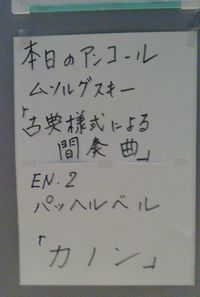 本日のアンコール
ムソルグスキー
「古典様式による
間奏曲」
EN.2
パッヘルベル
「カノン」